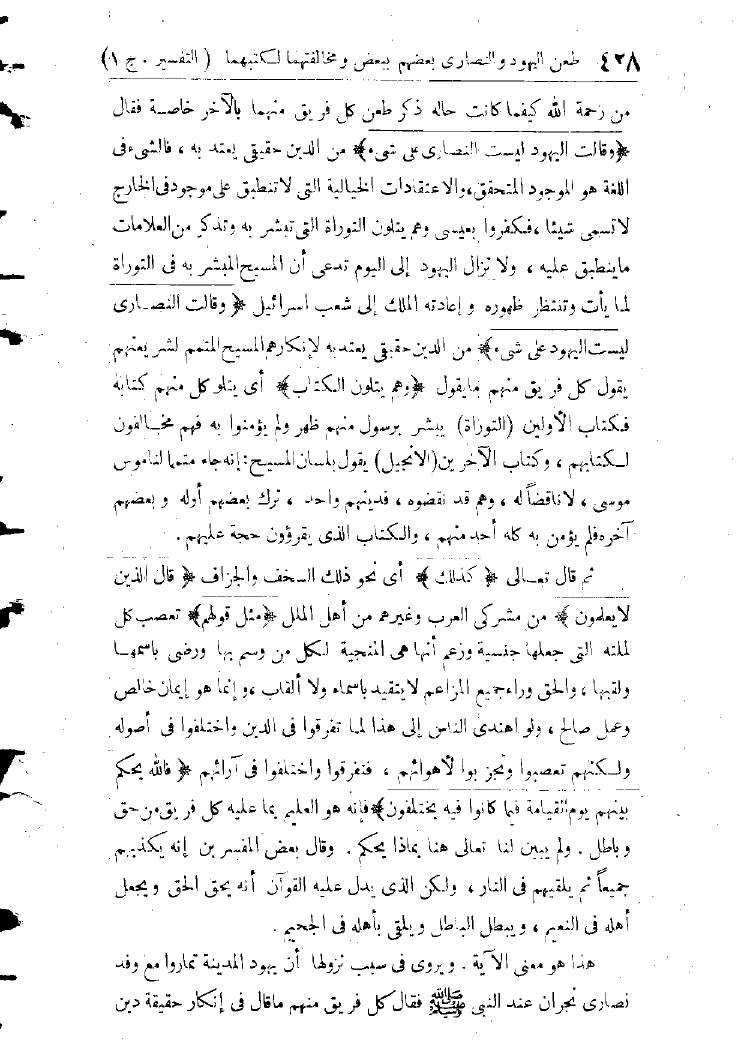 ٤٢٨ طعن اليهود والنصارى بعضهم ببعض ومخالفتهما لكتبهما ( التفسير . ج ١ )
من رحمة الله كيفما كانت حاله ذكر طعن كل فريق منهما بالآخر خاصة فقال
﴿وقالت اليهود ليست النصارى على شىء﴾ من الدين حقيقى يعتد به ، فالشىء فى
اللغة هو الموجود المتحقق، والاعتقادات الخيالية التى لا تنطبق على موجود فى الخارج
لا تسمى شيئا ، فكفروا بعيسى وهم يتلون التوراة التى تبشر به وتذكر من العلامات
ما ينطبق عليه ، ولا تزال اليهود إلى اليوم تدعى أن المسيح المبشر به فى التوراة
لما يأت وتنتظر ظهوره و إعادته الملك إلى شعب اسرائيل ﴿ وقالت النصارى
ليست اليهود على شىء﴾ من الدين حقيقى يعتد به لإنكارهم المسيح المتمم لشريعتهم
يقول كل فريق منهم ما يقول ﴿وهم يتلون الكتاب﴾ أى يتلو كل منهم كتابه
فكتاب الأولين (التوراة) يبشر برسول منهم ظهر ولم يؤمنوا به فهم مخالفون
لكتابهم ، وكتاب الآخرين (الانجيل) يقول بلسان المسيح : إنه جاء متمما لناموس
موسى ، لا ناقضاً له ، وهم قد نقضوه ، فدينهم واحد ، ترك بعضهم أوله و بعضهم
آخره فلم يؤمن به كله أحد منهم ، والكتاب الذى يقرؤون حجة عليهم .
ثم قال تعالى ﴿ كذلك ﴾ أى نحو ذلك السخف والجزاف ﴿ قال الذين
لا يعلمون ﴾ من مشركى العرب وغيرهم من أهل الملل ﴿مثل قولهم﴾ تعصب كل
لملته التى جعلها جنسية وزعم أنها هى المنجية لكل من وسم بها ورضى باسمها
ولقبها ، والحق وراء جميع المزاعم لا يتقيد باسماء ولا ألقاب ، وإنما هو إيمان خالص
وعمل صالح ، ولو اهتدى الناس إلى هذا لما تفرقوا فى الدين واختلفوا فى أصوله
ولكنهم تعصبوا وتحزبوا لأهوائهم ، فتفرقوا واختلفوا فى آرائهم ﴿ فالله يحكم
بينهم يوم القيامة فيما كانوا فيه يختلفون﴾ فإنه هو العليم بما عليه كل فريق من حق
و باطل . ولم يبين لنا تعالى هنا بماذا يحكم . وقال بعض المفسرين إنه يكذبهم
جميعاً ثم يلقيهم فى النار ، ولكن الذى يدل عليه القرآن أنه يحق الحق ويجعل
أهله فى النعيم ، و يبطل الباطل و يلقى بأهله فى الجحيم .
هذا هو معنى الآية . ويروى فى سبب نزولها أن يهود المدينة تماروا مع وفد
نصارى نجران عند النبى ﷺ فقال كل فريق منهم ما قال فى إنكار حقيقة دين